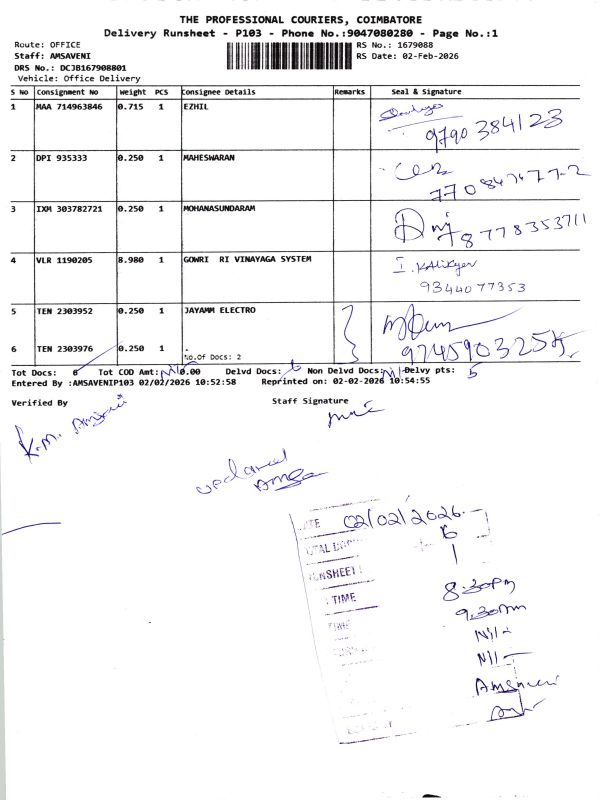 THE PROFESSIONAL COURIERS, COIMBATORE
Delivery Runsheet - P103 - Phone No.:9047080280 - Page No.:1
Route: OFFICE RS No.: 1679088
Staff: AMSAVENI RS Date: 02-Feb-2026
DRS No.: DCJB167908801
Vehicle: Office Delivery
S No Consignment No Weight PCS Consignee Details Remarks Seal & Signature
1 MAA 714963846 0.715 1 EZHIL
9790 384123
2 DPI 935333 0.250 1 MAHESWARAN
3 IXM 303782721 0.250 1 MOHANASUNDARAM
8778353711
4 VLR 1190205 8.980 1 GOWRI RI VINAYAGA SYSTEM
9344077353
5 TEN 2303952 0.250 1 JAYAMM ELECTRO
6 TEN 2303976 0.250 1 .
No.Of Docs: 2
9745903254
Tot Docs: 6 Tot COD Amt: 0.00 Delvd Docs: 6 Non Delvd Docs: Nil Delvy pts: 5
Entered By :AMSAVENIP103 02/02/2026 10:52:58 Reprinted on: 02-02-2026 10:54:55
Verified By Staff Signature
02/02/2026
6
RUNSHEET 1
TIME 8.30pm
9.30pm
Nil
Nil